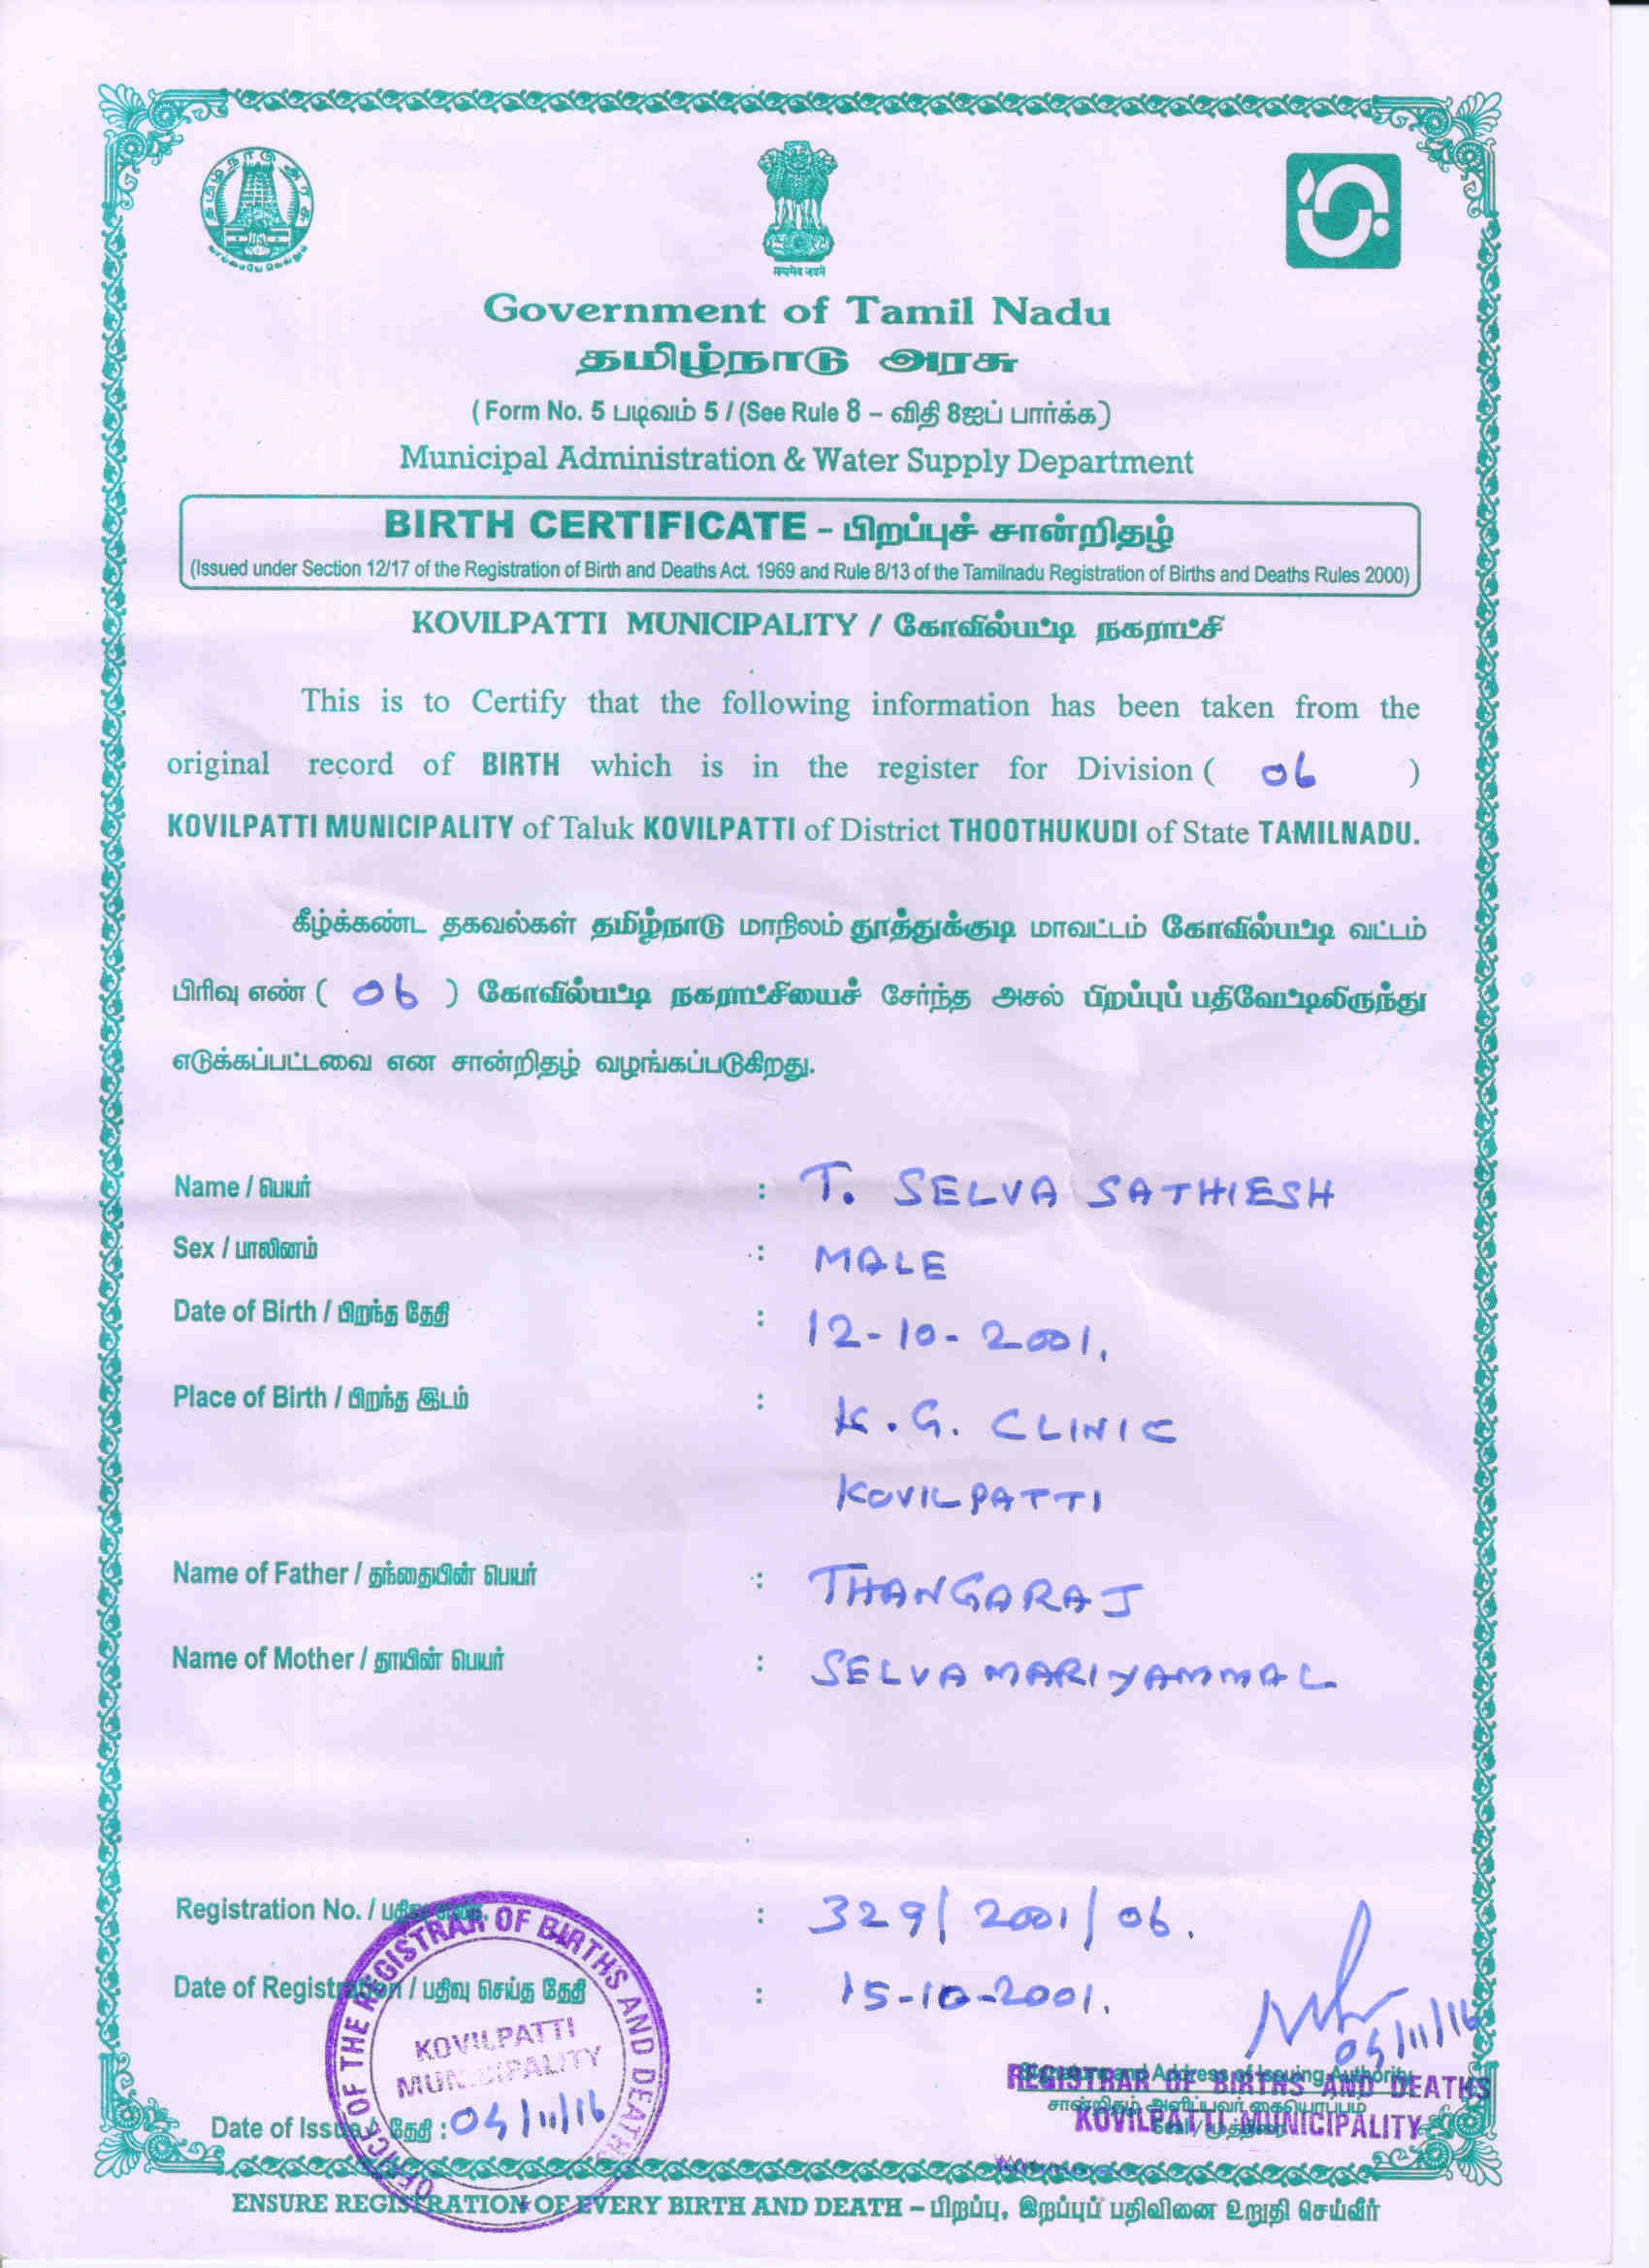 தமிழ்நாடு அரசு
सत्यमेव जयते
Government of Tamil Nadu
தமிழ்நாடு அரசு
( Form No. 5 படிவம் 5 / (See Rule 8 – விதி 8ஐப் பார்க்க)
Municipal Administration & Water Supply Department
BIRTH CERTIFICATE – பிறப்புச் சான்றிதழ்
(Issued under Section 12/17 of the Registration of Birth and Deaths Act. 1969 and Rule 8/13 of the Tamilnadu Registration of Births and Deaths Rules 2000)
KOVILPATTI MUNICIPALITY / கோவில்பட்டி நகராட்சி
This is to Certify that the following information has been taken from the
original record of BIRTH which is in the register for Division ( 06 )
KOVILPATTI MUNICIPALITY of Taluk KOVILPATTI of District THOOTHUKUDI of State TAMILNADU.
கீழ்க்கண்ட தகவல்கள் தமிழ்நாடு மாநிலம் தூத்துக்குடி மாவட்டம் கோவில்பட்டி வட்டம்
பிரிவு எண் ( 06 ) கோவில்பட்டி நகராட்சியைச் சேர்ந்த அசல் பிறப்புப் பதிவேட்டிலிருந்து
எடுக்கப்பட்டவை என சான்றிதழ் வழங்கப்படுகிறது.
Name / பெயர் : T. SELVA SATHIESH
Sex / பாலினம் : MALE
Date of Birth / பிறந்த தேதி : 12-10-2001.
Place of Birth / பிறந்த இடம் : K.G. CLINIC
KOVILPATTI
Name of Father / தந்தையின் பெயர் : THANGARAJ
Name of Mother / தாயின் பெயர் : SELVAMARIYAMMAL
Registration No. / பதிவு : 329/2001/06.
Date of Registration / பதிவு செய்த தேதி : 15-10-2001.
OFFICE OF THE REGISTRAR OF BIRTHS AND DEATHS
KOVILPATTI
MUNICIPALITY
Signature and Address of Issuing Authority
REGISTRAR OF BIRTHS AND DEATHS
சான்றிதழ் அளிப்பவர் கையொப்பம்
KOVILPATTI MUNICIPALITY
Date of Issue / தேதி : 04/11/16
ENSURE REGISTRATION OF EVERY BIRTH AND DEATH – பிறப்பு, இறப்புப் பதிவினை உறுதி செய்வீர்